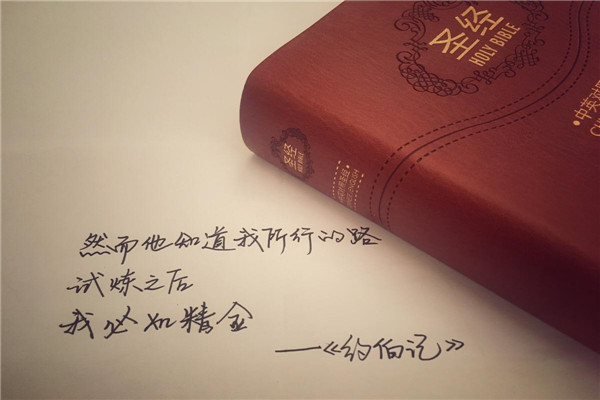 圣经
HOLY BIBLE
中英对
圣经
HOLY BIBLE
然而他知道我所行的路
试炼之后
我必如精金
—《约伯记》